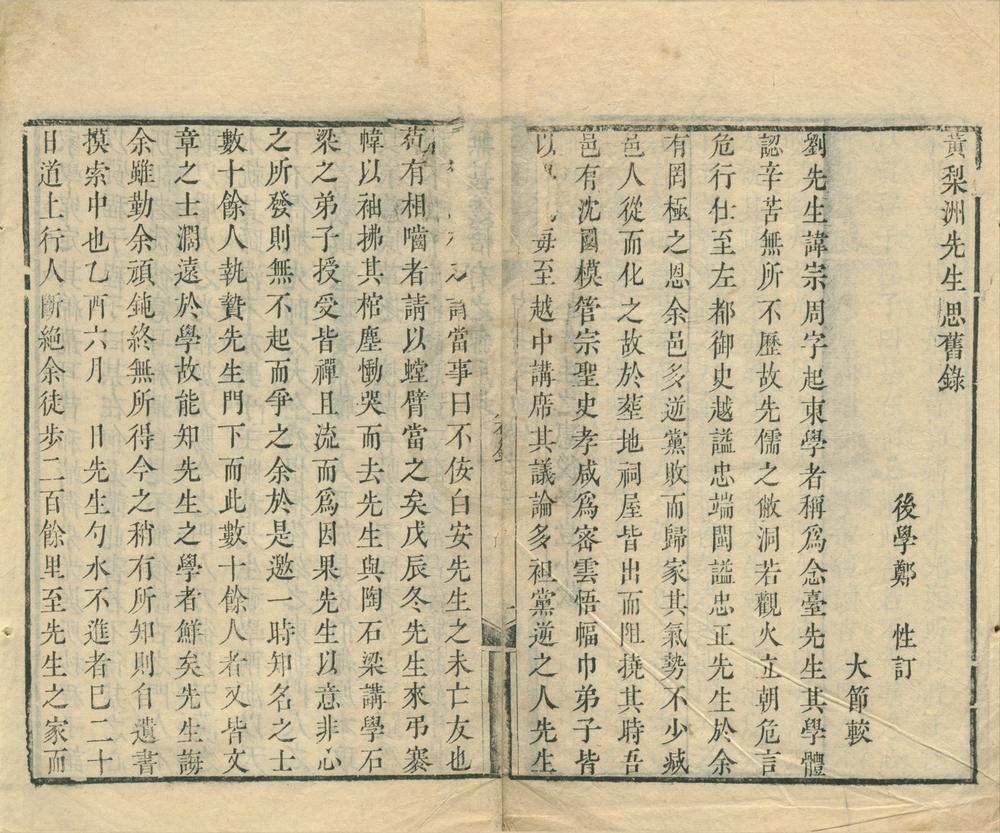 黃梨洲先生思舊錄
後學鄭 性訂
大節較
劉先生諱宗周字起東學者稱爲念臺先生其學體
認辛苦無所不歷故先儒之敝洞若觀火立朝危言
危行仕至左都御史越謚忠端閩謚忠正先生於余
有罔極之恩余邑多逆黨敗而歸家其氣勢不少减
邑人從而化之故於塟地祠屋皆出而阻撓其時吾
邑有沈國模管宗聖史孝咸爲密雲悟幅巾弟子皆
以 每至越中講席其議論多袒黨逆之人先生
當事曰不佞白安先生之未亡友也
苟有相嚙者請以螳臂當之矣戊辰冬先生來弔褰
幃以袖拂其棺塵慟哭而去先生與陶石梁講學石
梁之弟子授受皆禪且流而爲因果先生以意非心
之所發則無不起而爭之余於是邀一時知名之士
數十餘人執贄先生門下而此數十餘人者又皆文
章之士濶遠於學故能知先生之學者鮮矣先生誨
余雖勤余頑鈍終無所得今之稍有所知則自遺書
摸索中也乙酉六月 日先生勺水不進者已二十
日道上行人斷絶余徒步二百餘里至先生之家而